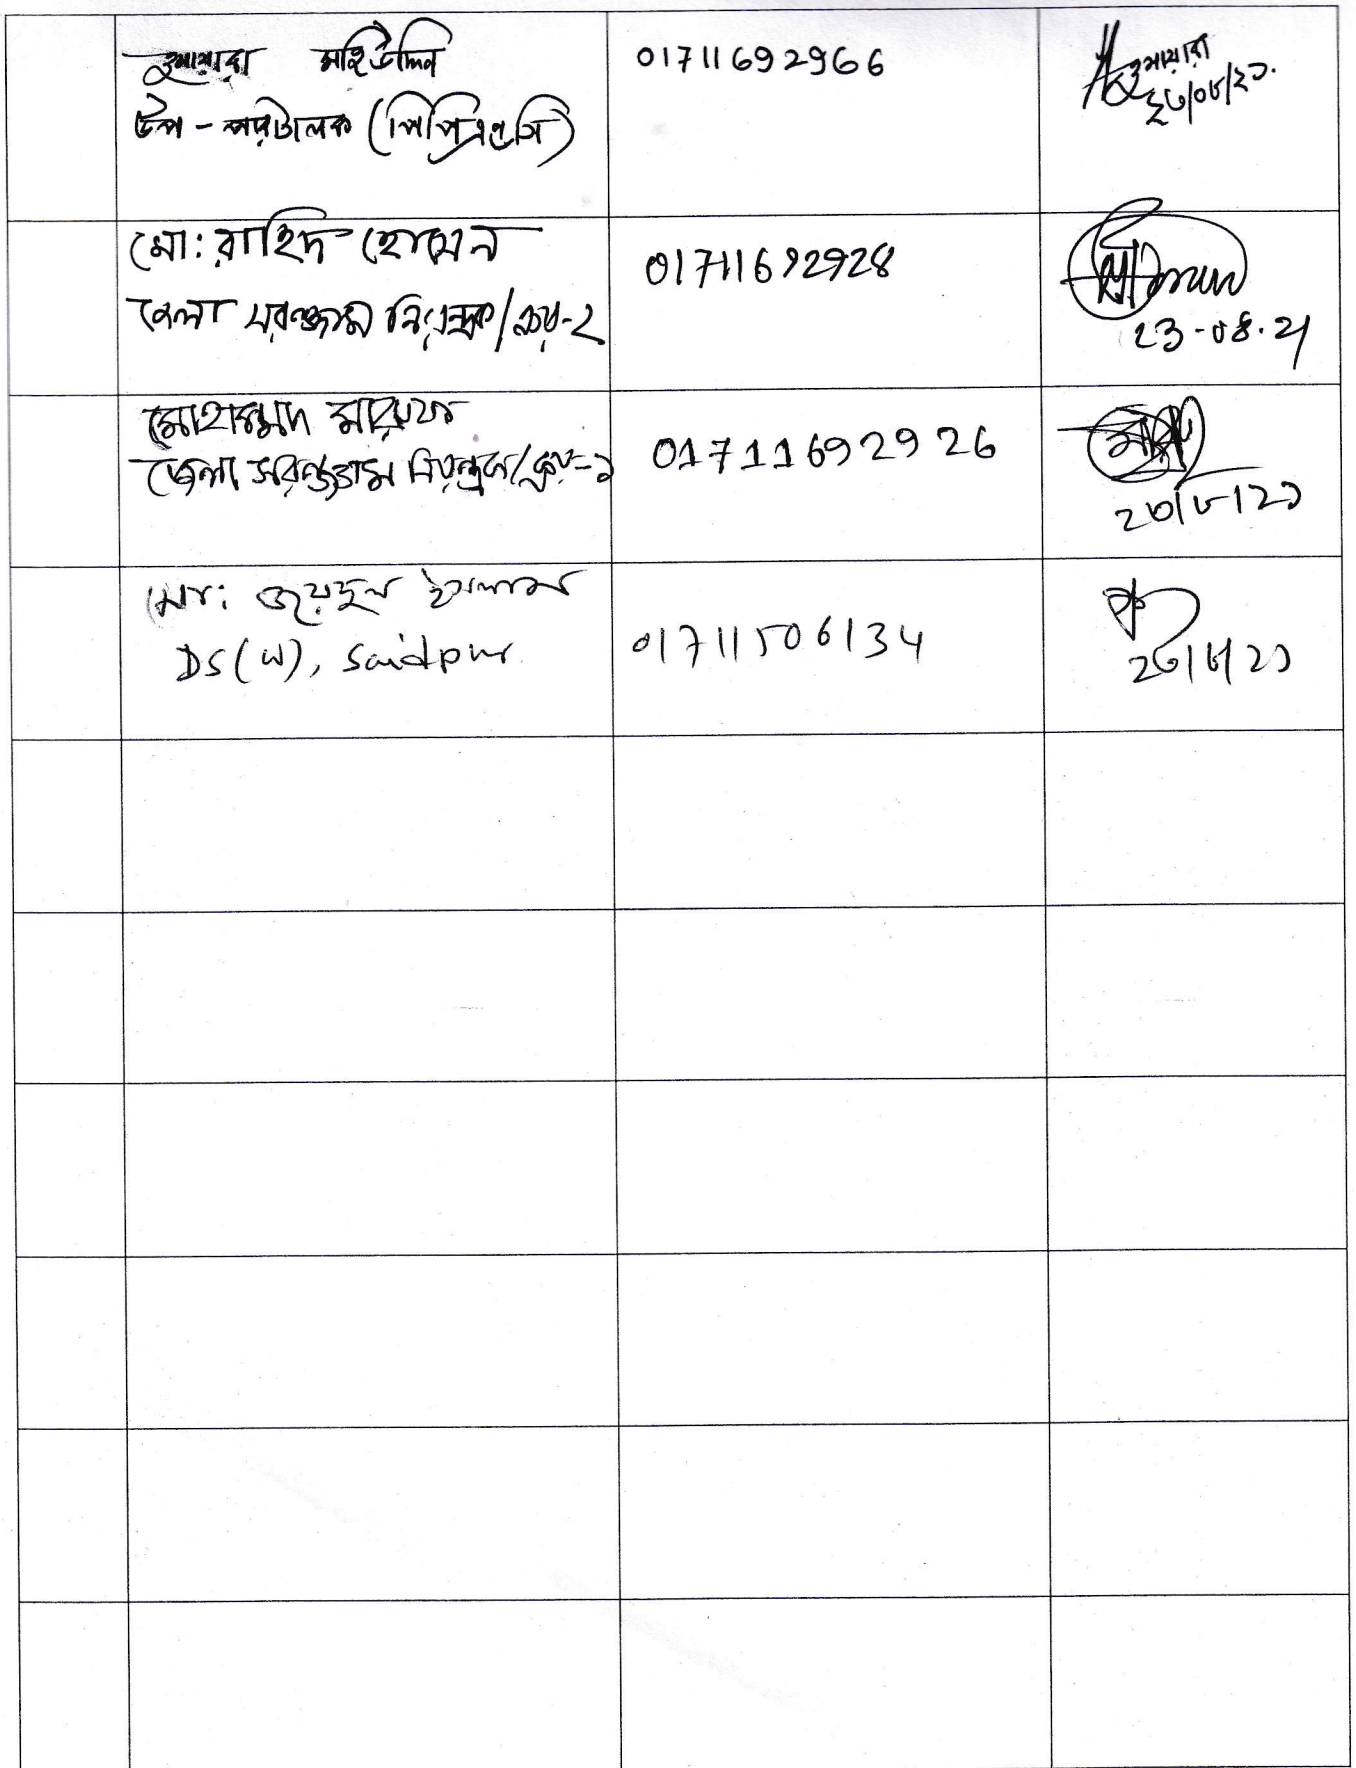 হুমায়রা মহিউদ্দিন
উপ-পরিচালক (পিপিএন্ডসি)
01711692966
হুমায়রা
২৩/০৮/২১.
মো: রাহিদ হোসেন
জেলা সরঞ্জাম নিয়ন্ত্রক/ক্রয়-২
01711692928
23-08.21
মোহাম্মদ মারুফ
জেলা সরঞ্জাম নিয়ন্ত্রক/ক্রয়-১
01711692926
২৩/৮/২১
মো: ওয়েদুল ইসলাম
DS(W), Saidpur
01711506134
২৩/৮/২১